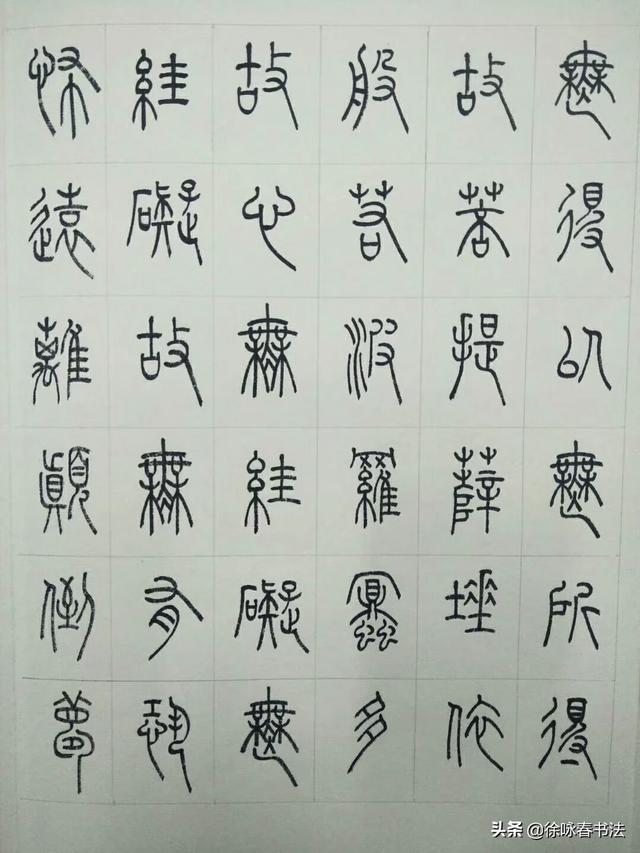 無得以無所得
故菩提薛埵依
般若波羅蜜多
故心無絓礙無
絓礙故無有恐
怖遠離顛倒夢
头条 @徐咏春书法